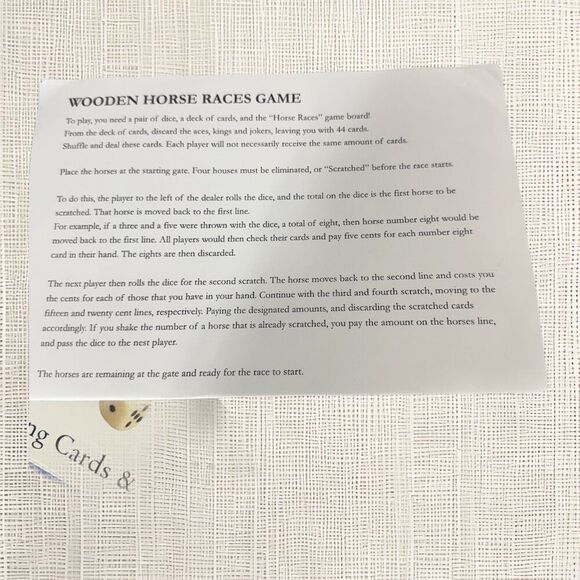 WOODEN HORSE RACES GAME
To play, you need a pair of dice, a deck of cards, and the “Horse Races” game board!
From the deck of cards, discard the aces, kings and jokers, leaving you with 44 cards.
Shuffle and deal these cards. Each player will not necessarily receive the same amount of cards.
Place the horses at the starting gate. Four houses must be eliminated, or “Scratched” before the race starts.
To do this, the player to the left of the dealer rolls the dice, and the total on the dice is the first horse to be
scratched. That horse is moved back to the first line.
For example, if a three and a five were thrown with the dice, a total of eight, then horse number eight would be
moved back to the first line. All players would then check their cards and pay five cents for each number eight
card in their hand. The eights are then discarded.
The next player then rolls the dice for the second scratch. The horse moves back to the second line and costs you
the cents for each of those that you have in your hand. Continue with the third and fourth scratch, moving to the
fifteen and twenty cent lines, respectively. Paying the designated amounts, and discarding the scratched cards
accordingly. If you shake the number of a horse that is already scratched, you pay the amount on the horses line,
and pass the dice to the nest player.
The horses are remaining at the gate and ready for the race to start.
ng Cards &